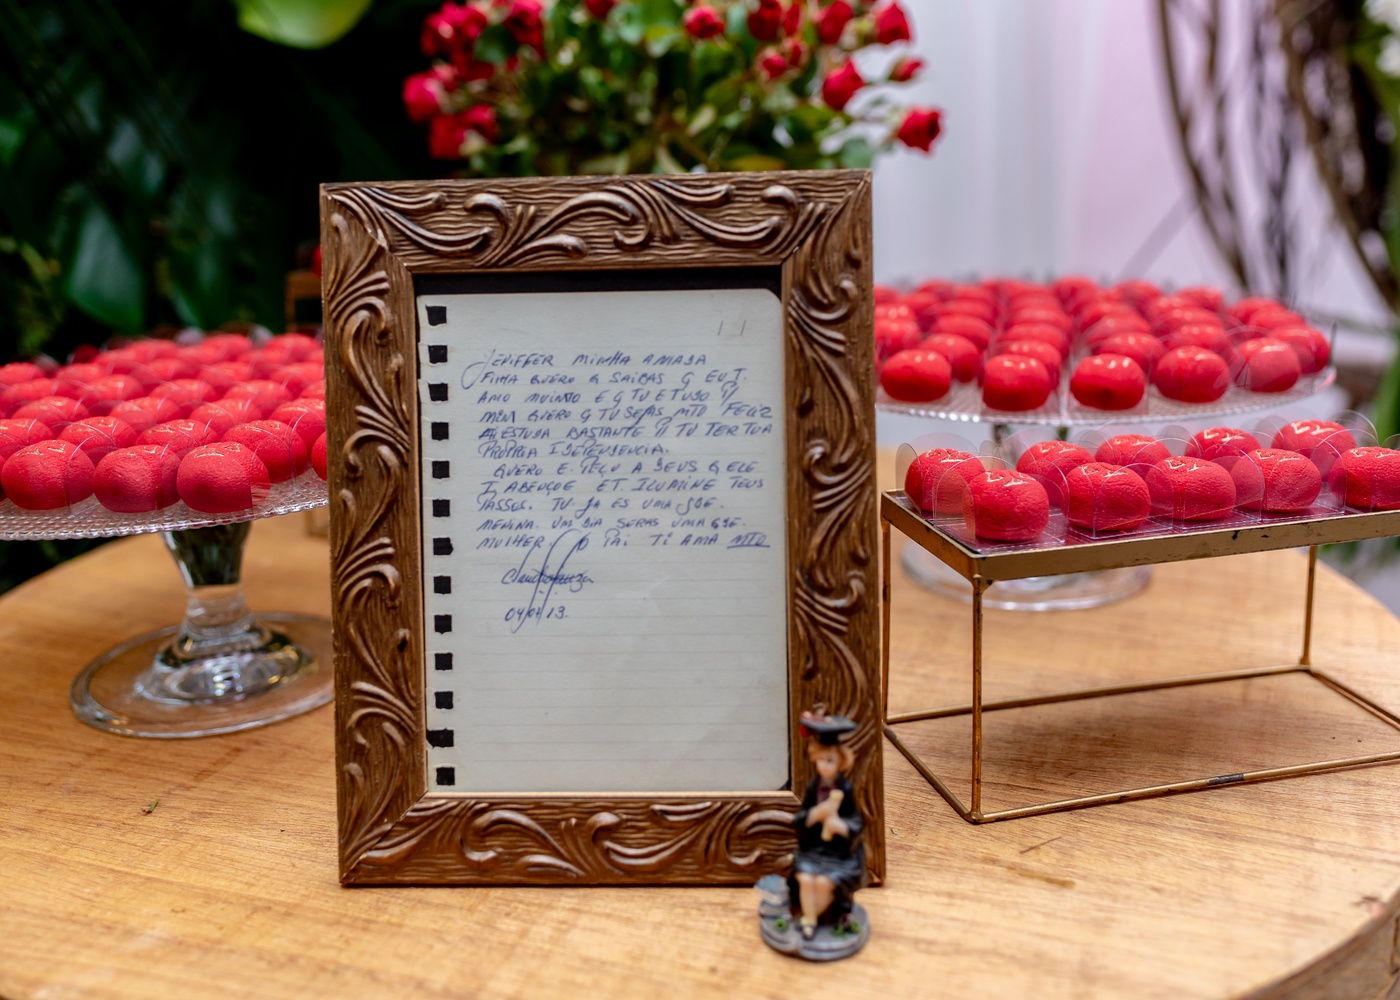 / /
JENIFFER MINHA AMADA
FILHA QUERO Q SAIBAS Q EU T.
AMO MUINTO E Q TU E TUDO P/
MIM QUERO Q TU SEJAS MTO FELIZ
ESTUDA BASTANTE P/ TU TER TUA
PRÓPRIA IDEPENDENCIA.
QUERO E PEÇO A DEUS Q ELE
T, ABENÇOE ET. ILUMINE TEUS
PASSOS. TU JA ES UMA GDE.
MENINA. UM DIA SERAS UMA GDE.
MULHER. O PAI TI AMA MTO
13.